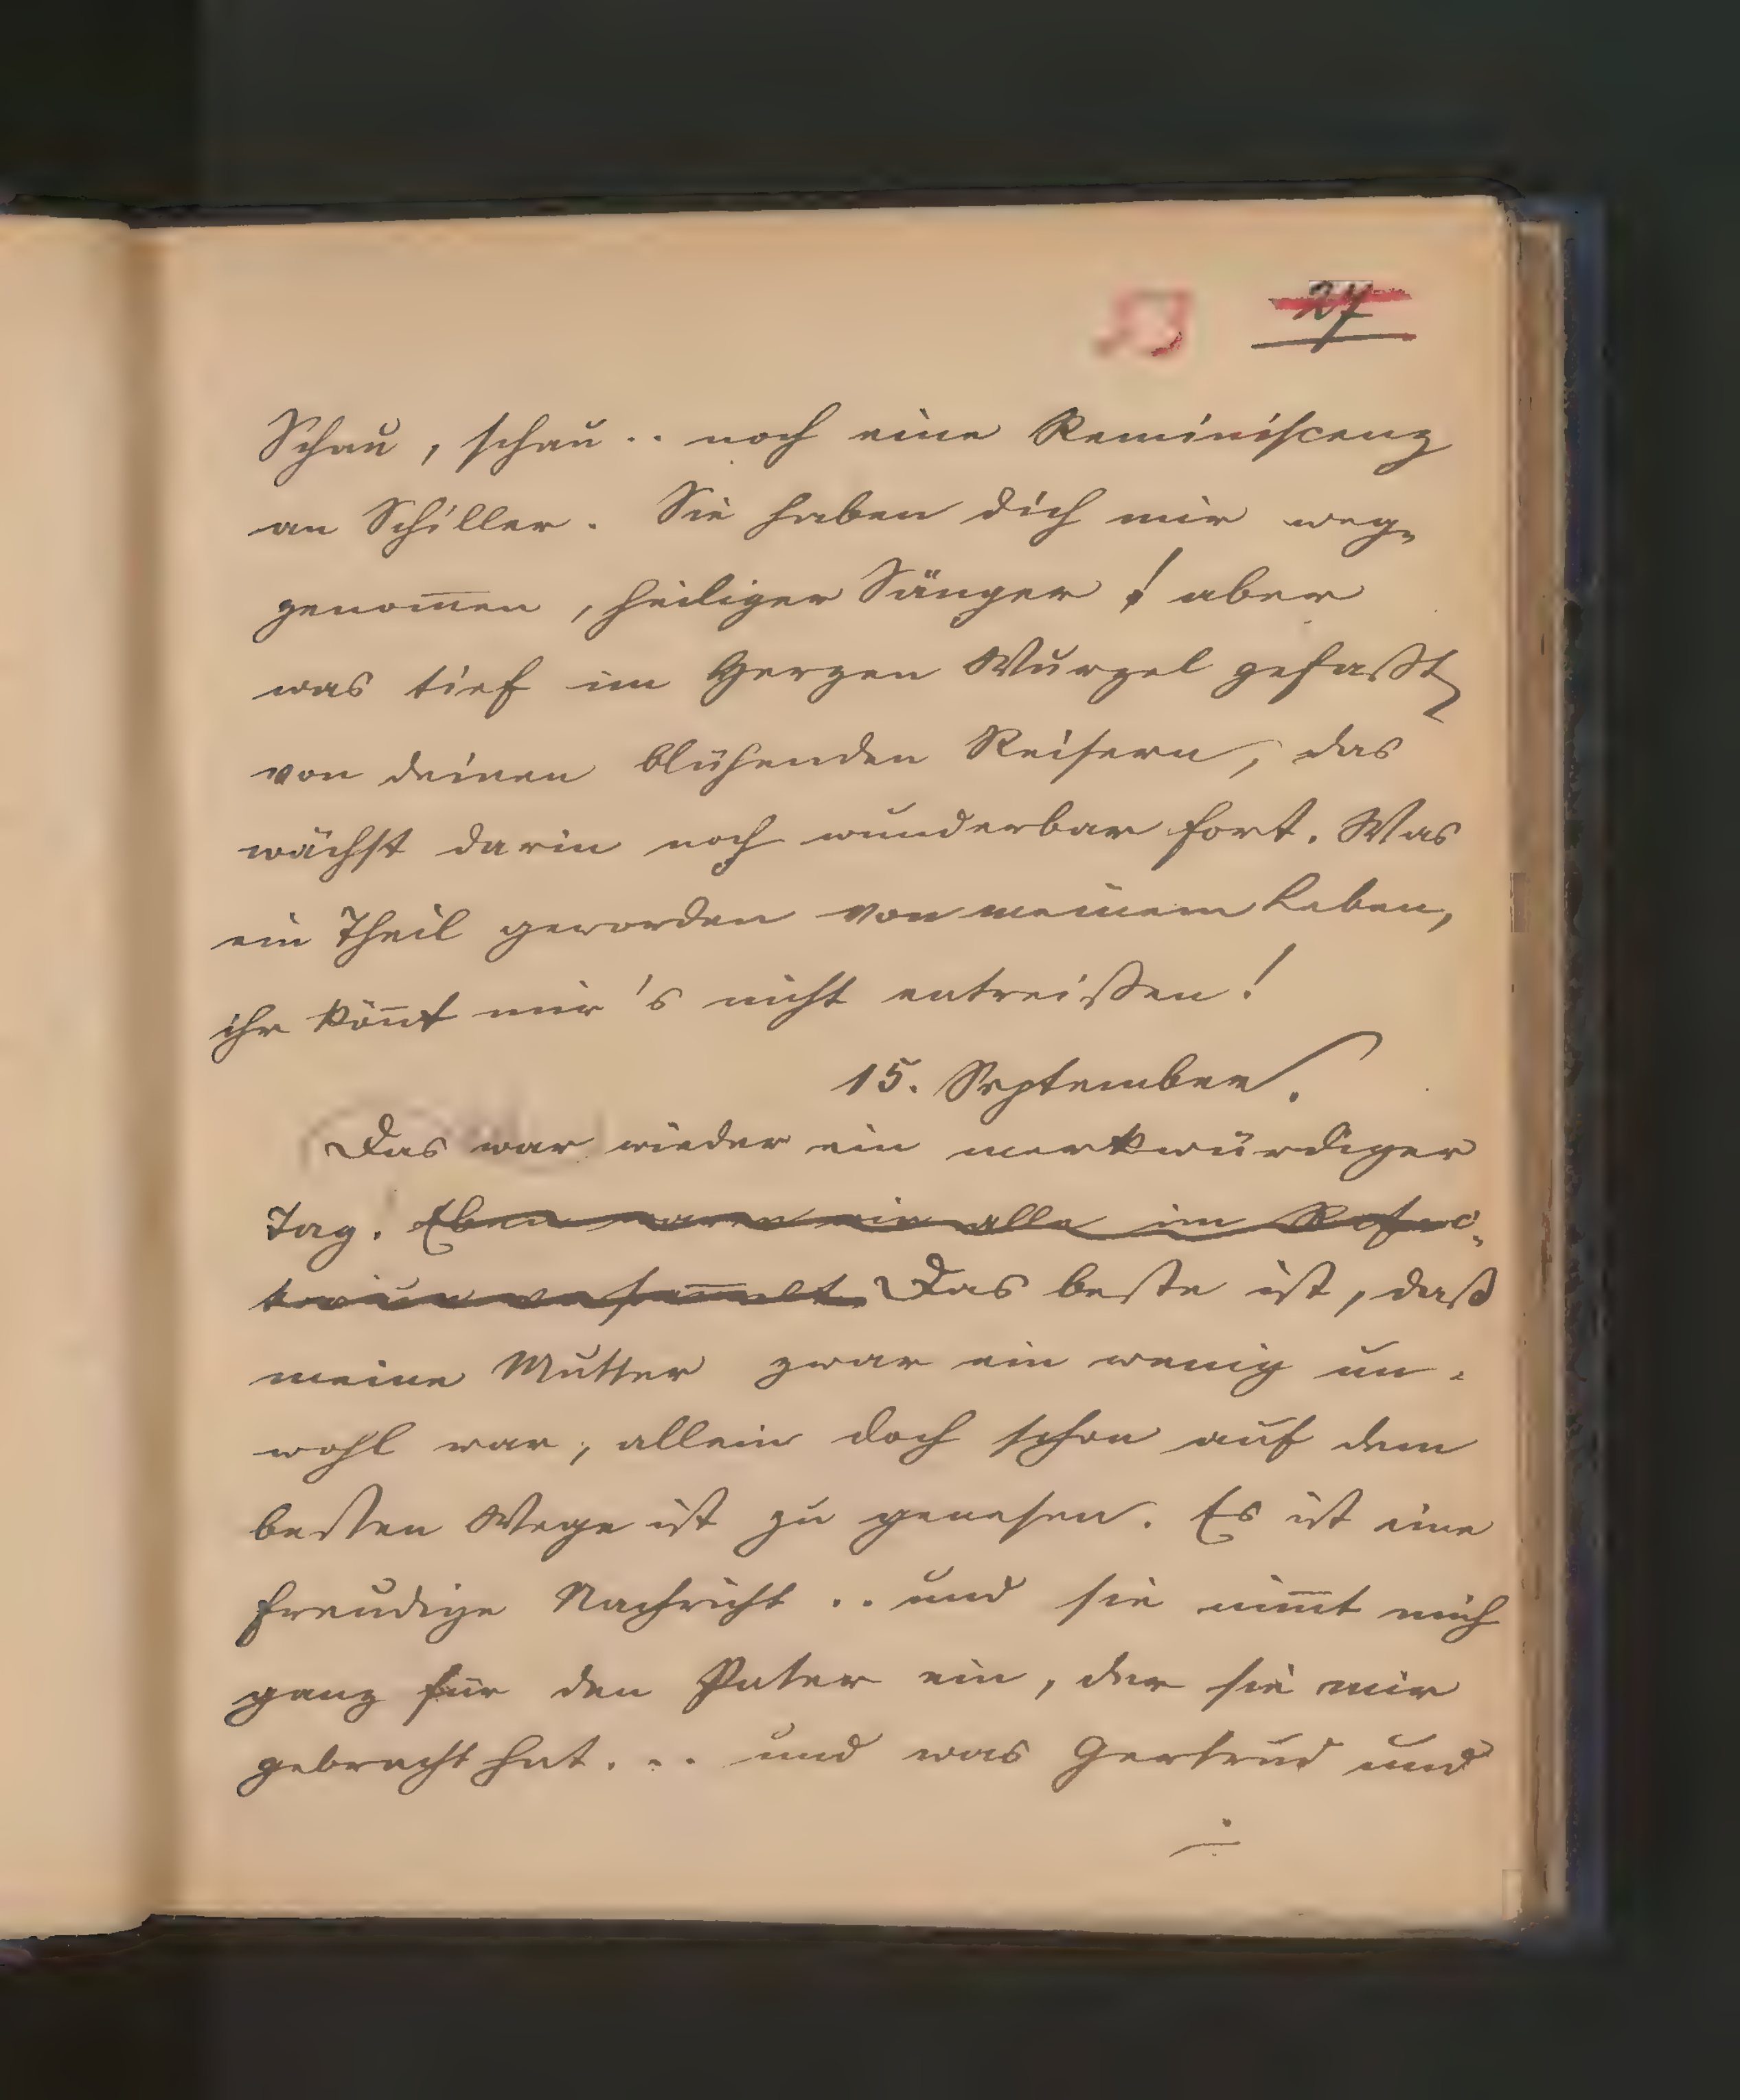 53 27
Schau, schau.. noch eine Reminiscenz
an Schiller. Sie haben dich mir weg-
genom̅en, heiliger Sänger! aber
was tief im Herzen Wurzel gefaßt,
von deinen blühenden Reisern, das
wächst darin noch wunderbar fort. Was
ein Theil geworden von meinem Leben,
ihr kön̅t mir's nicht entreißen!
15. September.
Das war wieder ein merkwürdiger
Tag. Eben waren wir alle im Refec-
torium versam̅elt. Das beste ist, daß
meine Mutter zwar ein wenig un-
wohl war, allein doch schon auf dem
besten Wege ist zu genesen. Es ist eine
freudige Nachricht .. und sie nim̅t mich
ganz für den Pater ein, der sie mir
gebracht hat. .. und was Gertrud und